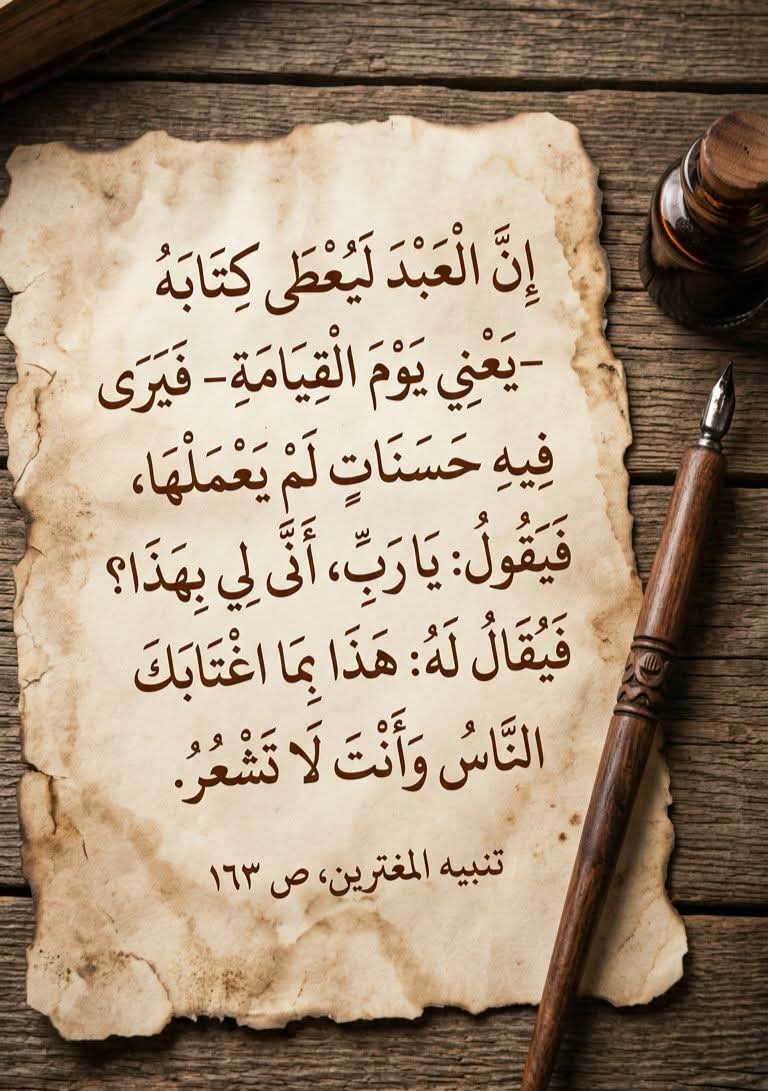 إِنَّ الْعَبْدَ لَيُعْطَى كِتَابَهُ
-يَعْنِي يَوْمَ الْقِيَامَةِ- فَيَرَى
فِيهِ حَسَنَاتٍ لَمْ يَعْمَلْهَا،
فَيَقُولُ: يَا رَبِّ، أَنَّى لِي بِهَذَا؟
فَيُقَالُ لَهُ: هَذَا بِمَا اغْتَابَكَ
النَّاسُ وَأَنْتَ لَا تَشْعُرُ.
تنبيه المغترين، ص ١٦٣